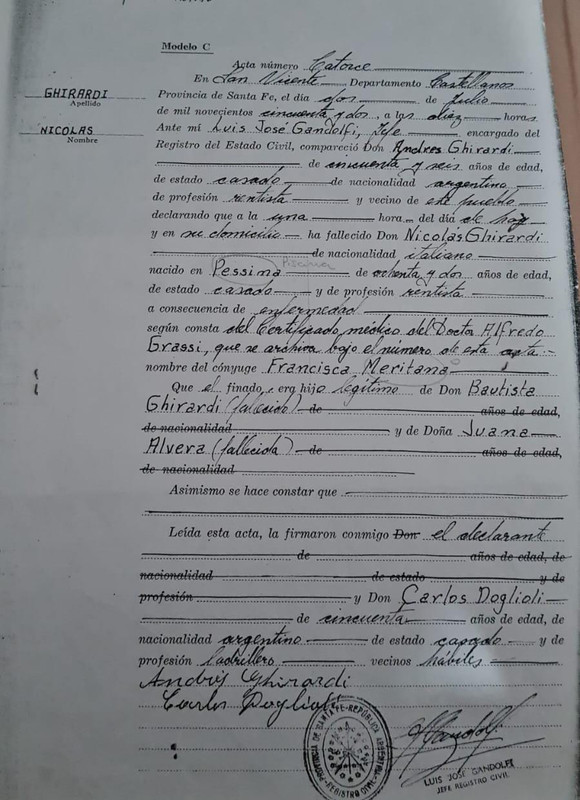 Modelo C
Acta número Catorce
En San Vicente Departamento Castellanos
GHIRARDI
Apellido
Provincia de Santa Fe, el día dos de Julio
de mil novecientos cincuenta y dos, a las diez horas
NICOLAS
Nombre
Ante mí Luis José Gandolfi, Jefe encargado del
Registro del Estado Civil, compareció Don Andres Ghirardi
de cincuenta y seis años de edad,
de estado casado de nacionalidad argentino
de profesión rentista y vecino de este pueblo
declarando que a la una hora del día de hoy
y en su domicilio ha fallecido Don Nicolás Ghirardi
de nacionalidad italiano
nacido en Pessina de ochenta y dos años de edad,
de estado casado y de profesión rentista
a consecuencia de enfermedad
según consta del Certificado médico del Doctor Alfredo
Grassi, que se archiva bajo el número de esta acta
nombre del cónyuge Francisca Meritana
Que el finado, era hijo legítimo de Don Bautista
Ghirardi (fallecido) de años de edad,
de nacionalidad y de Doña Juana
Alvera (fallecida) de años de edad,
de nacionalidad
Asimismo se hace constar que
Leída esta acta, la firmaron conmigo Don el declarante
de años de edad, de
nacionalidad de estado y de
profesión y Don Carlos Doglioli
de cincuenta años de edad, de
nacionalidad argentino de estado casado y de
profesión ladrillero vecinos hábiles
Andrés Ghirardi
Carlos Doglioli
PROVINCIA DE SANTA FE - REPÚBLICA ARGENTINA
REGISTRO CIVIL
LUIS JOSÉ GANDOLFI
JEFE REGISTRO CIVIL